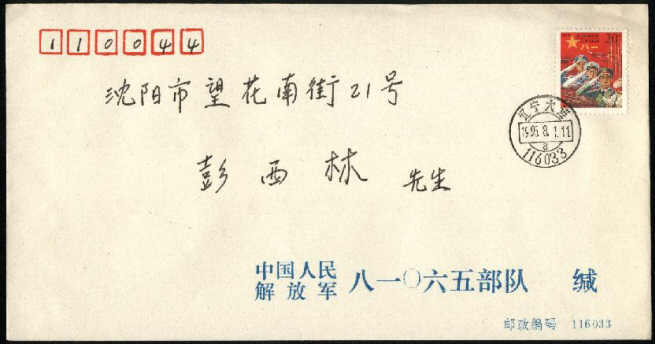 110044
沈阳市望花南街21号
彭西林 先生
八一
辽宁大连
1995.8.1.11
116033
中国人民
解放军 八一〇六五部队 缄
邮政编号 116033